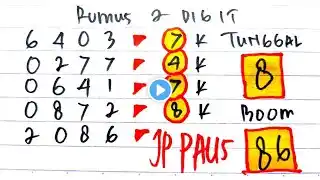 Rumus 2 DIGIT
6 4 0 3 7 K TUNGGAL
0 2 7 7 4 K 8
0 6 4 1 7 K
0 8 7 2 8 K BOOM
2 0 8 6 JP PAUS 86